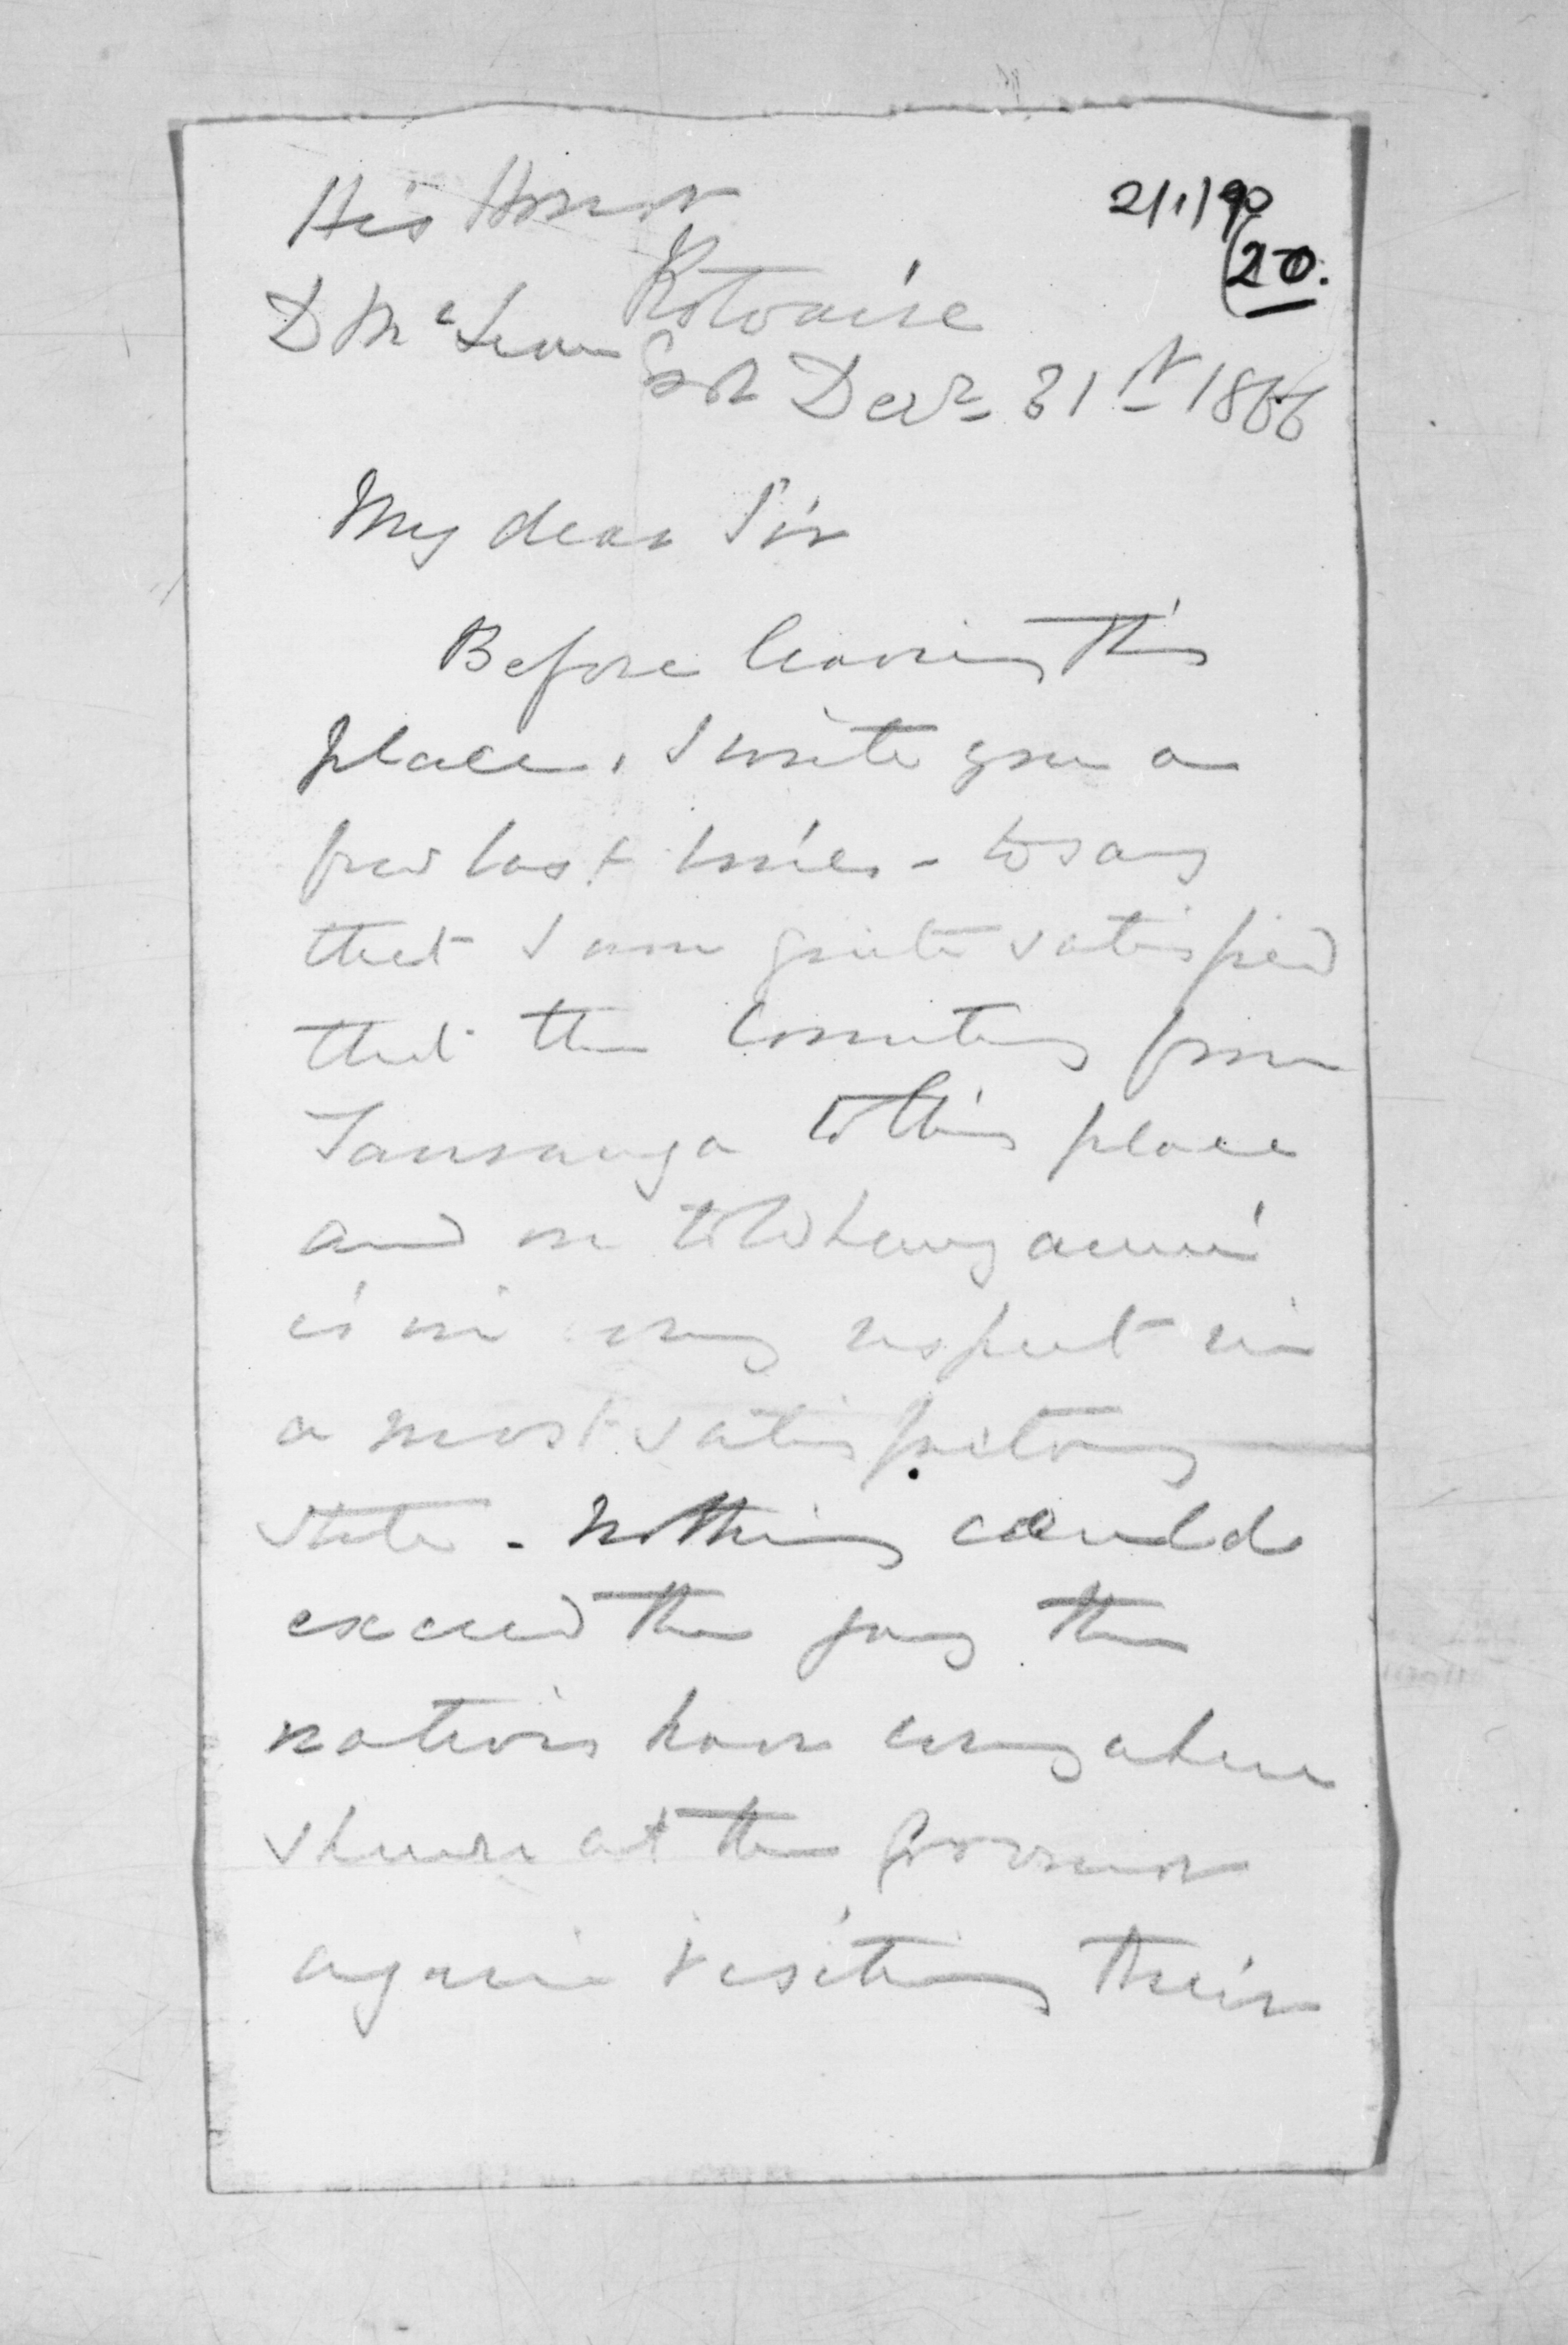 His Honor
21/1/90
(20.
Rotoaire
D McLean Esqr Decr 31st 1866
My dear Sir
Before leaving this
place, I write you a
few last lines - to say
that I am quite satisfied
that the Country from
Tauranga to this place
and on to Whanganui
is in every respect in
a most satisfactory
state - nothing could
exceed the joy the
natives have everywhere
shewn at the Governor
again visiting their